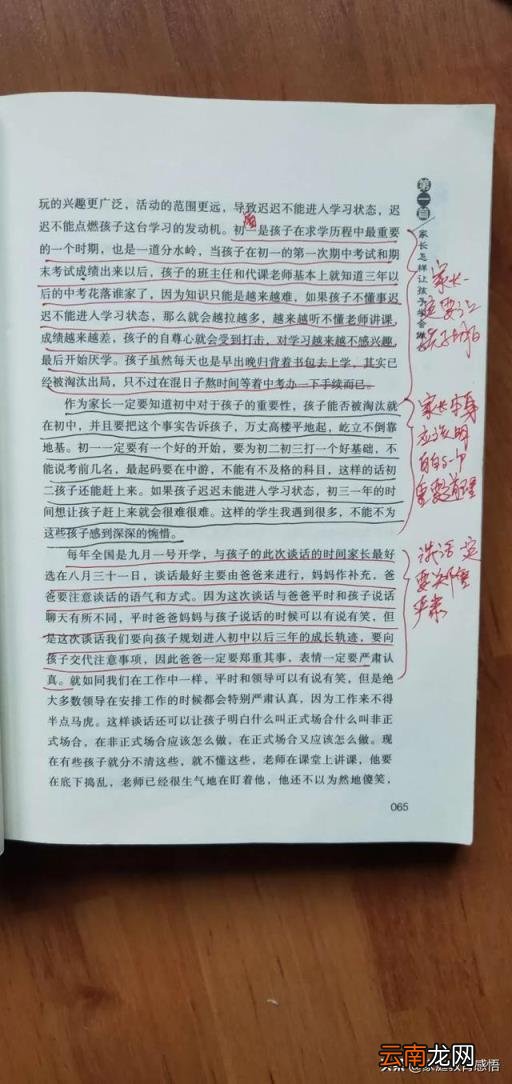 玩的兴趣更广泛，活动的范围更远，导致迟迟不能进入学习状态，迟
迟不能点燃孩子这台学习的发动机。初一是孩子在求学历程中最重要
的一个时期，也是一道分水岭，当孩子在初一的第一次期中考试和期
末考试成绩出来以后，孩子的班主任和代课老师基本上就知道三年以
后的中考花落谁家了，因为知识只能是越来越难，如果孩子不懂事迟
迟不能进入学习状态，那么就会越拉越多，越来越听不懂老师讲课，
成绩越来越差，孩子的自尊心就会受到打击，对学习越来越不感兴趣，
最后开始厌学。孩子虽然每天也是早出晚归背着书包去上学，其实已
经被淘汰出局，只不过在混日子熬时间等着中考办一下手续而已。
作为家长一定要知道初中对于孩子的重要性，孩子能否被淘汰就
在初中，并且要把这个事实告诉孩子，万丈高楼平地起，屹立不倒靠
地基。初一一定要有一个好的开始，要为初二初三打一个好基础，不
能说考前几名，最起码要在中游，不能有不及格的科目，这样的话初
二孩子还能赶上来。如果孩子迟迟未能进入学习状态，初三一年的时
间想让孩子赶上来就会很难很难。这样的学生我遇到很多，不能不为
这些孩子感到深深的惋惜。
每年全国是九月一号开学，与孩子的此次谈话的时间家长最好
选在八月三十一日，谈话最好主要由爸爸来进行，妈妈作补充，爸
爸要注意谈话的语气和方式。因为这次谈话与爸爸平时和孩子说话
聊天有所不同，平时爸爸妈妈与孩子说话的时候可以有说有笑，但
是这次谈话我们要向孩子规划进入初中以后三年的成长轨迹，要向
孩子交代注意事项，因此爸爸一定要郑重其事，表情一定要严肃认
真。就如同我们在工作中一样，平时和领导可以有说有笑，但是绝
大多数领导在安排工作的时候都会特别严肃认真，因为工作来不得
半点马虎。这样谈话还可以让孩子明白什么叫正式场合什么叫非正
式场合，在非正式场合应该怎么做，在正式场合又应该怎么做。现
在有些孩子就分不清这些，就不懂这些，老师在课堂上讲课，他要
在底下捣乱，老师已经很生气地在盯着他，他还不以为然地傻笑，
065
第一章
家长怎样让孩子学会
家长一
定要让
孩子明白
家长本身
应该明
白
重要
谈话一定
要
严肃
头条@家庭教育感悟
云南龙网